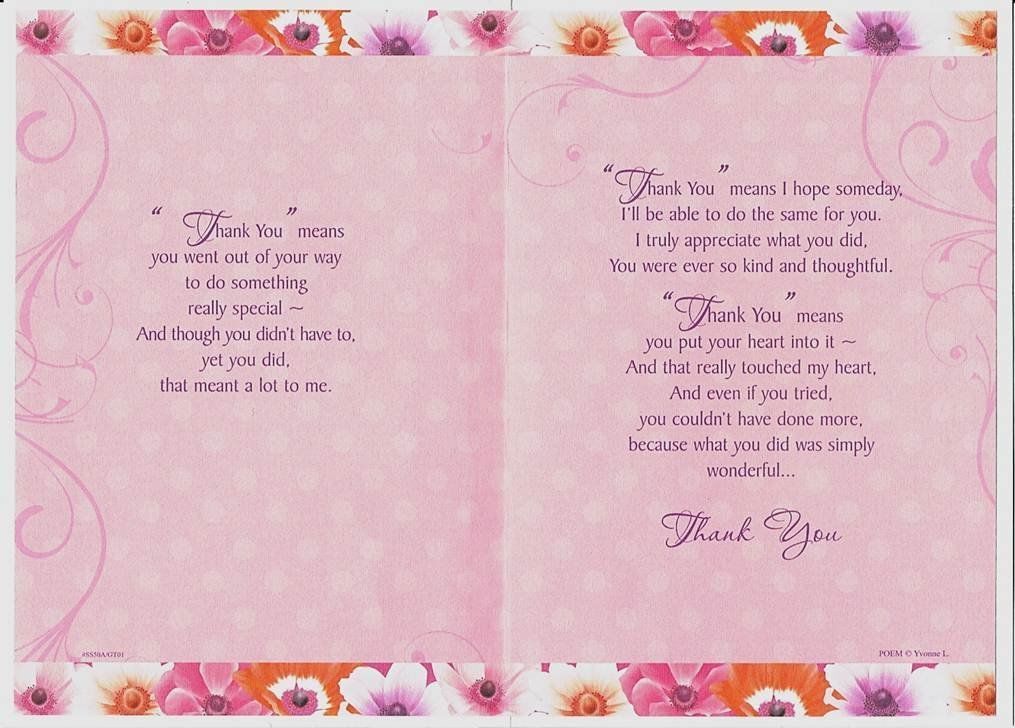 “Thank You” means
you went out of your way
to do something
really special ~
And though you didn't have to,
yet you did,
that meant a lot to me.
#SS50A/GT01
“Thank You” means I hope someday,
I'll be able to do the same for you.
I truly appreciate what you did,
You were ever so kind and thoughtful.
“Thank You” means
you put your heart into it ~
And that really touched my heart,
And even if you tried,
you couldn't have done more,
because what you did was simply
wonderful...
Thank You
POEM © Yvonne L.